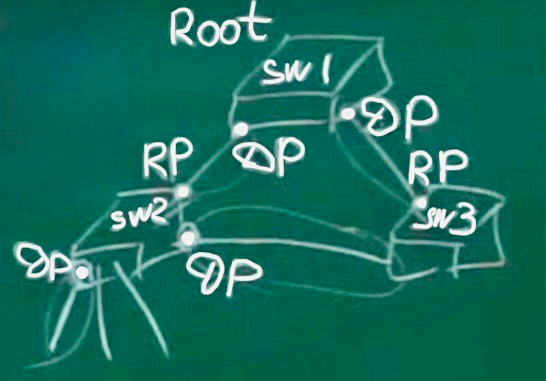 Root
SW1
DP
DP
RP
RP
SW2
SW3
DP
DP